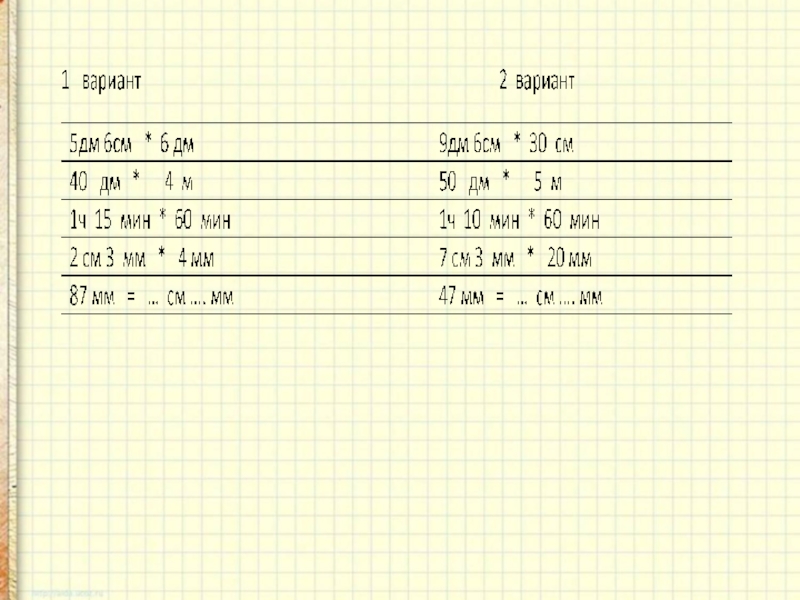 1 вариант 2 вариант
5дм 6см * 6 дм 9дм 6см * 30 см
40 дм * 4 м 50 дм * 5 м
1ч 15 мин * 60 мин 1ч 10 мин * 60 мин
2 см 3 мм * 4 мм 7 см 3 мм * 20 мм
87 мм = ... см .... мм 47 мм = ... см .... мм